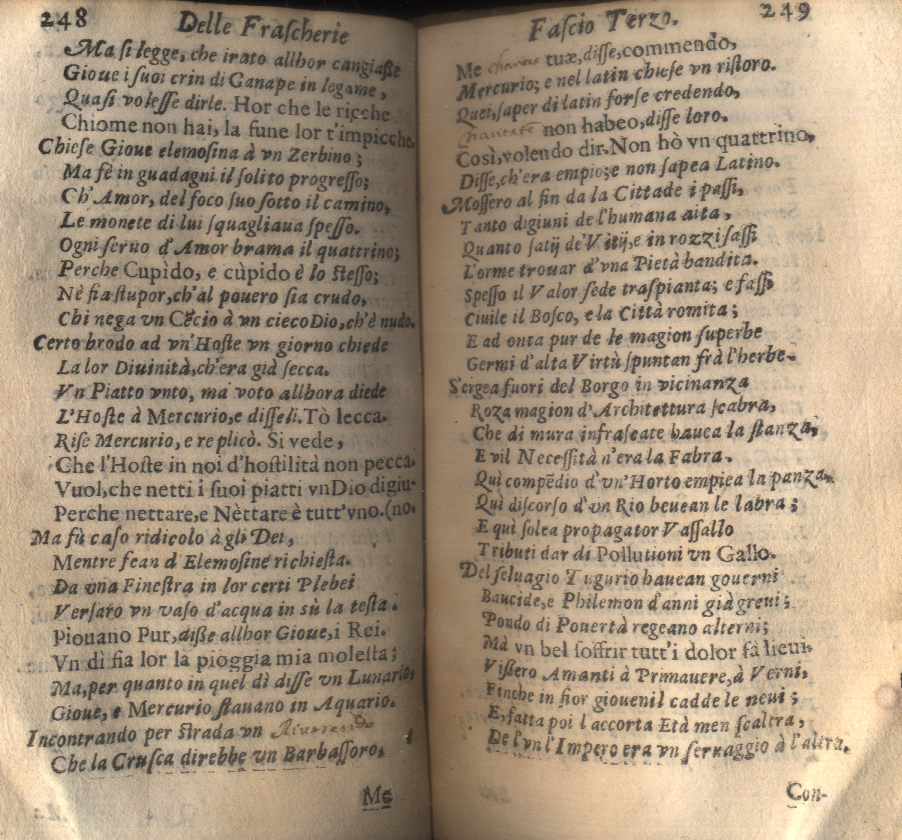 248 Delle Fraſcherie
Ma ſi legge, che irato allhor cangiaſte
Gioue i ſuoi crin di Canape in legame,
Quaſi voleſſe dirle. Hor che le ricche
Chiome non hai, la fune lor t'impicche.
Chieſe Gioue elemoſina à vn Zerbino;
Ma fè in guadagni il ſolito progreſſo;
Ch'Amor, del foco ſuo ſotto il camino,
Le monete di lui ſquagliaua ſpeſſo.
Ogni ſeruo d'Amor brama il quattrino;
Perche Cupìdo, e cùpido è lo ſteſſo;
Nè fia ſtupor, ch'al pouero ſia crudo,
Chi nega vn Cècio à vn cieco Dio, ch'è nudo.
Certo brodo ad vn'Hoſte vn giorno chiede
La lor Diuinità, ch'era già ſecca.
Vn Piatto vnto, ma voto allhora diede
L'Hoſte à Mercurio, e diſſeli. Tò lecca.
Riſe Mercurio, e replicò. Si vede,
Che l'Hoſte in noi d'hoſtilità non pecca.
Vuol, che netti i ſuoi piatti vn Dio digiu-
Perche nettare, e Nèttare è tutt'vno. (no.
Ma fù caſo ridicolo à gli Dei,
Mentre fean d'Elemoſine richieſta.
Da vna Fineſtra in lor certi Plebei
Verſaro vn vaſo d'acqua in sù la teſta.
Piouano Pur, diſſe allhor Gioue, i Rei.
Vn dì fia lor la pioggia mia moleſta;
Ma, per quanto in quel dì diſſe vn Lunario,
Gioue, e Mercurio ſtauano in Aquario.
Incontrando per ſtrada vn Reuerendo
Che la Cruſca direbbe vn Barbaſſoro,
Me
Faſcio Terzo. 249
Me tuæ, diſſe, commendo,
Mercurio; e nel latin chieſe vn riſtoro.
Quei, ſaper di latin forſe credendo,
non habeo, diſſe loro.
Così, volendo dir. Non hò vn quattrino,
Diſſe, ch'era empio; e non ſapea Latino.
Moſſero al fin da la Cittade i paſſi,
Tanto digiuni de l'humana aita,
Quanto ſatij de' Vitij, e in rozzi ſaſſi
L'orme trouar d'vna Pietà bandita.
Speſſo il Valor ſede traſpianta; e faſſi
Ciuile il Boſco, e la Città romita;
E ad onta pur de le magion ſuperbe
Germi d'alta Virtù ſpuntan frà l'herbe.
S'ergea fuori del Borgo in vicinanza
Roza magion d'Architettura ſcabra,
Che di mura infraſcate hauea la ſtanza,
E vil Neceſſità n'era la Fabra.
Quì compẽdio d'vn'Horto empiea la panza
Quì diſcorſo d'vn Rio beuean le labra;
E quì ſolea propagator Vaſſallo
Tributi dar di Pollutioni vn Gallo.
Del ſeluagio Tugurio hauean gouerni
Baucide, e Philemon d'anni già greui;
Pondo di Pouertà regeano alterni;
Mà vn bel ſoffrir tutt'i dolor fà lieui.
Viſſero Amanti à Primauere, à Verni,
Finche in fior giouenil cadde le neui;
E, fatta poi l'accorta Età men ſcaltra,
De l'vn l'Impero era vn ſeruaggio à l'altra.
Con-